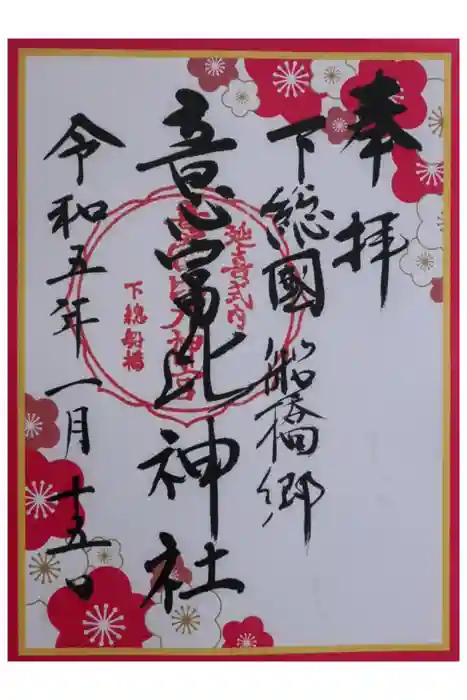 奉拝
下総國船橋郷
意富比神社
令和五年一月十五日
延喜式内
意富比大神宮
下総船橋